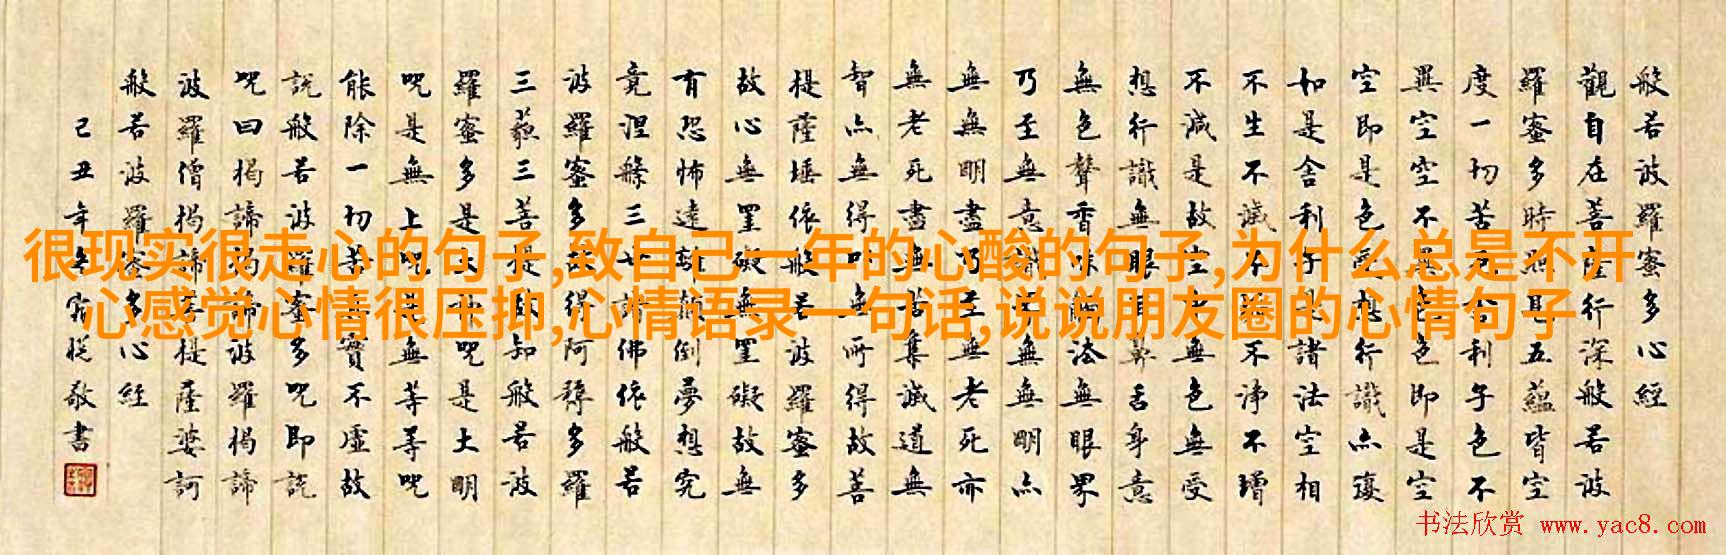 很现实很走心的句子,致自己一年的心酸的句子,为什么总是不开
心感觉心情很压抑,心情语录一句话,说说朋友圈的心情句子
般若波羅蜜多心經
觀自在菩薩行深般若波
羅蜜多時照見五蘊皆空
度一切苦厄舍利子色不
異空空不異色色即是空
空即是色受想行識亦復
如是舍利子是諸法空相
不生不滅不垢不淨不增
不減是故空中無色無受
想行識無眼耳鼻舌身意
無色聲香味觸法無眼界
乃至無意識界無無明亦
無無明盡乃至無老死亦
無老死盡無苦集滅道無
智亦無得以無所得故菩
提薩埵依般若波羅蜜多
故心無罣礙無罣礙故無
有恐怖遠離顛倒夢想究
竟涅槃三世諸佛依般若
波羅蜜多故得阿耨多羅
三藐三菩提故知般若波
羅蜜多是大神咒是大明
咒是無上咒是無等等咒
能除一切苦真實不虛故
說般若波羅蜜多咒即說
咒曰揭諦揭諦波羅揭諦
波羅僧揭諦菩提薩婆訶
般若波羅密多心經
己丑年冬敬書
书法欣赏 www.yac8.com